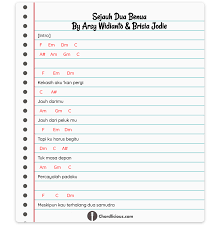 Sejauh Dua Benua
By Arsy Widianto & Brisia Jodie
[Intro]
F Em Dm C
A# Am Gm C
F Em Dm
Kekasih aku kan pergi
C A#
Jauh darimu
Am Gm C
Jauh dari peluk mu
F Em Dm
Tapi ku harus begitu
Dm C A#
Tuk masa depan
Am Gm C
Percayalah padaku
F C Dm
Meskipun kau terhalang dua samudra
Chordlicious.com